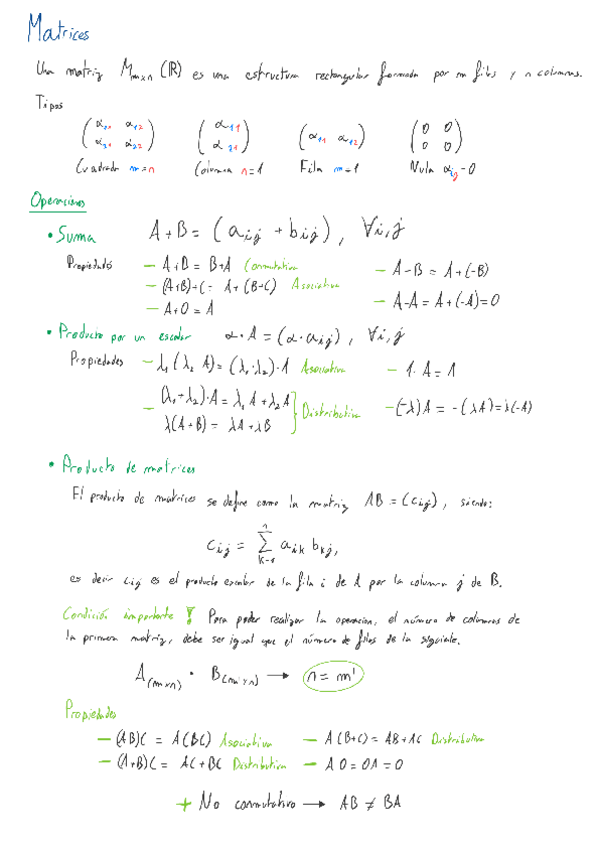 Matrices
Una matriz M_{m×n} (ℝ) es una estructura rectangular formada por m filas y n columnas.
Tipos
(α₁₁ α₁₂ (α₁₁ (α₁₁ α₁₂) (0 0
α₂₁ α₂₂) α₂₁) 0 0)
Cuadrada m=n Columna n=1 Fila m=1 Nula α_{ij}=0
Operaciones
• Suma A+B = (a_{ij} + b_{ij}), ∀i,j
Propiedades – A+B = B+A Conmutativa – A-B = A+(-B)
– (A+B)+C = A+(B+C) Asociativa – A-A = A+(-A)=0
– A+0 = A
• Producto por un escalar α·A = (α·a_{ij}), ∀i,j
Propiedades – λ₁(λ₂ A) = (λ₁·λ₂)·A Asociativa – 1·A = A
– (λ₁+λ₂)·A = λ₁A+λ₂A } Distributiva – (-λ)A = -(λA) = λ(-A)
λ(A+B) = λA+λB
• Producto de matrices
El producto de matrices se define como la matriz AB = (c_{ij}), siendo:
c_{ij} = Σ_{k=1}^{n} a_{ik} b_{kj},
es decir c_{ij} es el producto escalar de la fila i de A por la columna j de B.
Condición importante ! Para poder realizar la operacion, el número de columnas de
la primera matriz, debe ser igual que el número de filas de la siguiente.
A_{(m×n)} · B_{(m'×n)} → n = m'
Propiedades
– (AB)C = A(BC) Asociativa – A(B+C) = AB+AC Distributiva
– (A+B)C = AC+BC Distributiva – A0 = 0A = 0
+ No conmutativo → AB ≠ BA